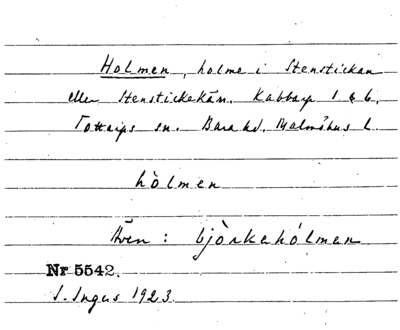 Holmen, holme i Stenstickan
eller Stenstickekän. Kabbarp 1 & 6,
Tottarps sn. Bara hd. Malmöhus l.
hòlmen
Även: bjòrkehólmen
Nr 5542.
S. Ingers 1923.